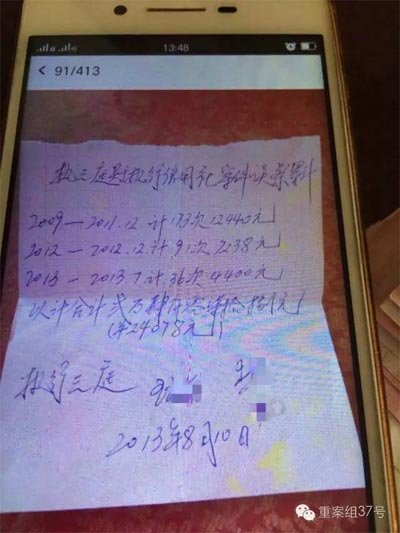 13:48
91/413
执三庭对执行信用社案件误餐累计
2009—2011.12计173次12440元
2012—2012.12计91次7238元
2013—2013.7计36次4400元
以计合计贰万肆仟零柒拾捌元
(￥24078元)
执行三庭
2013年8月10日
重案组37号